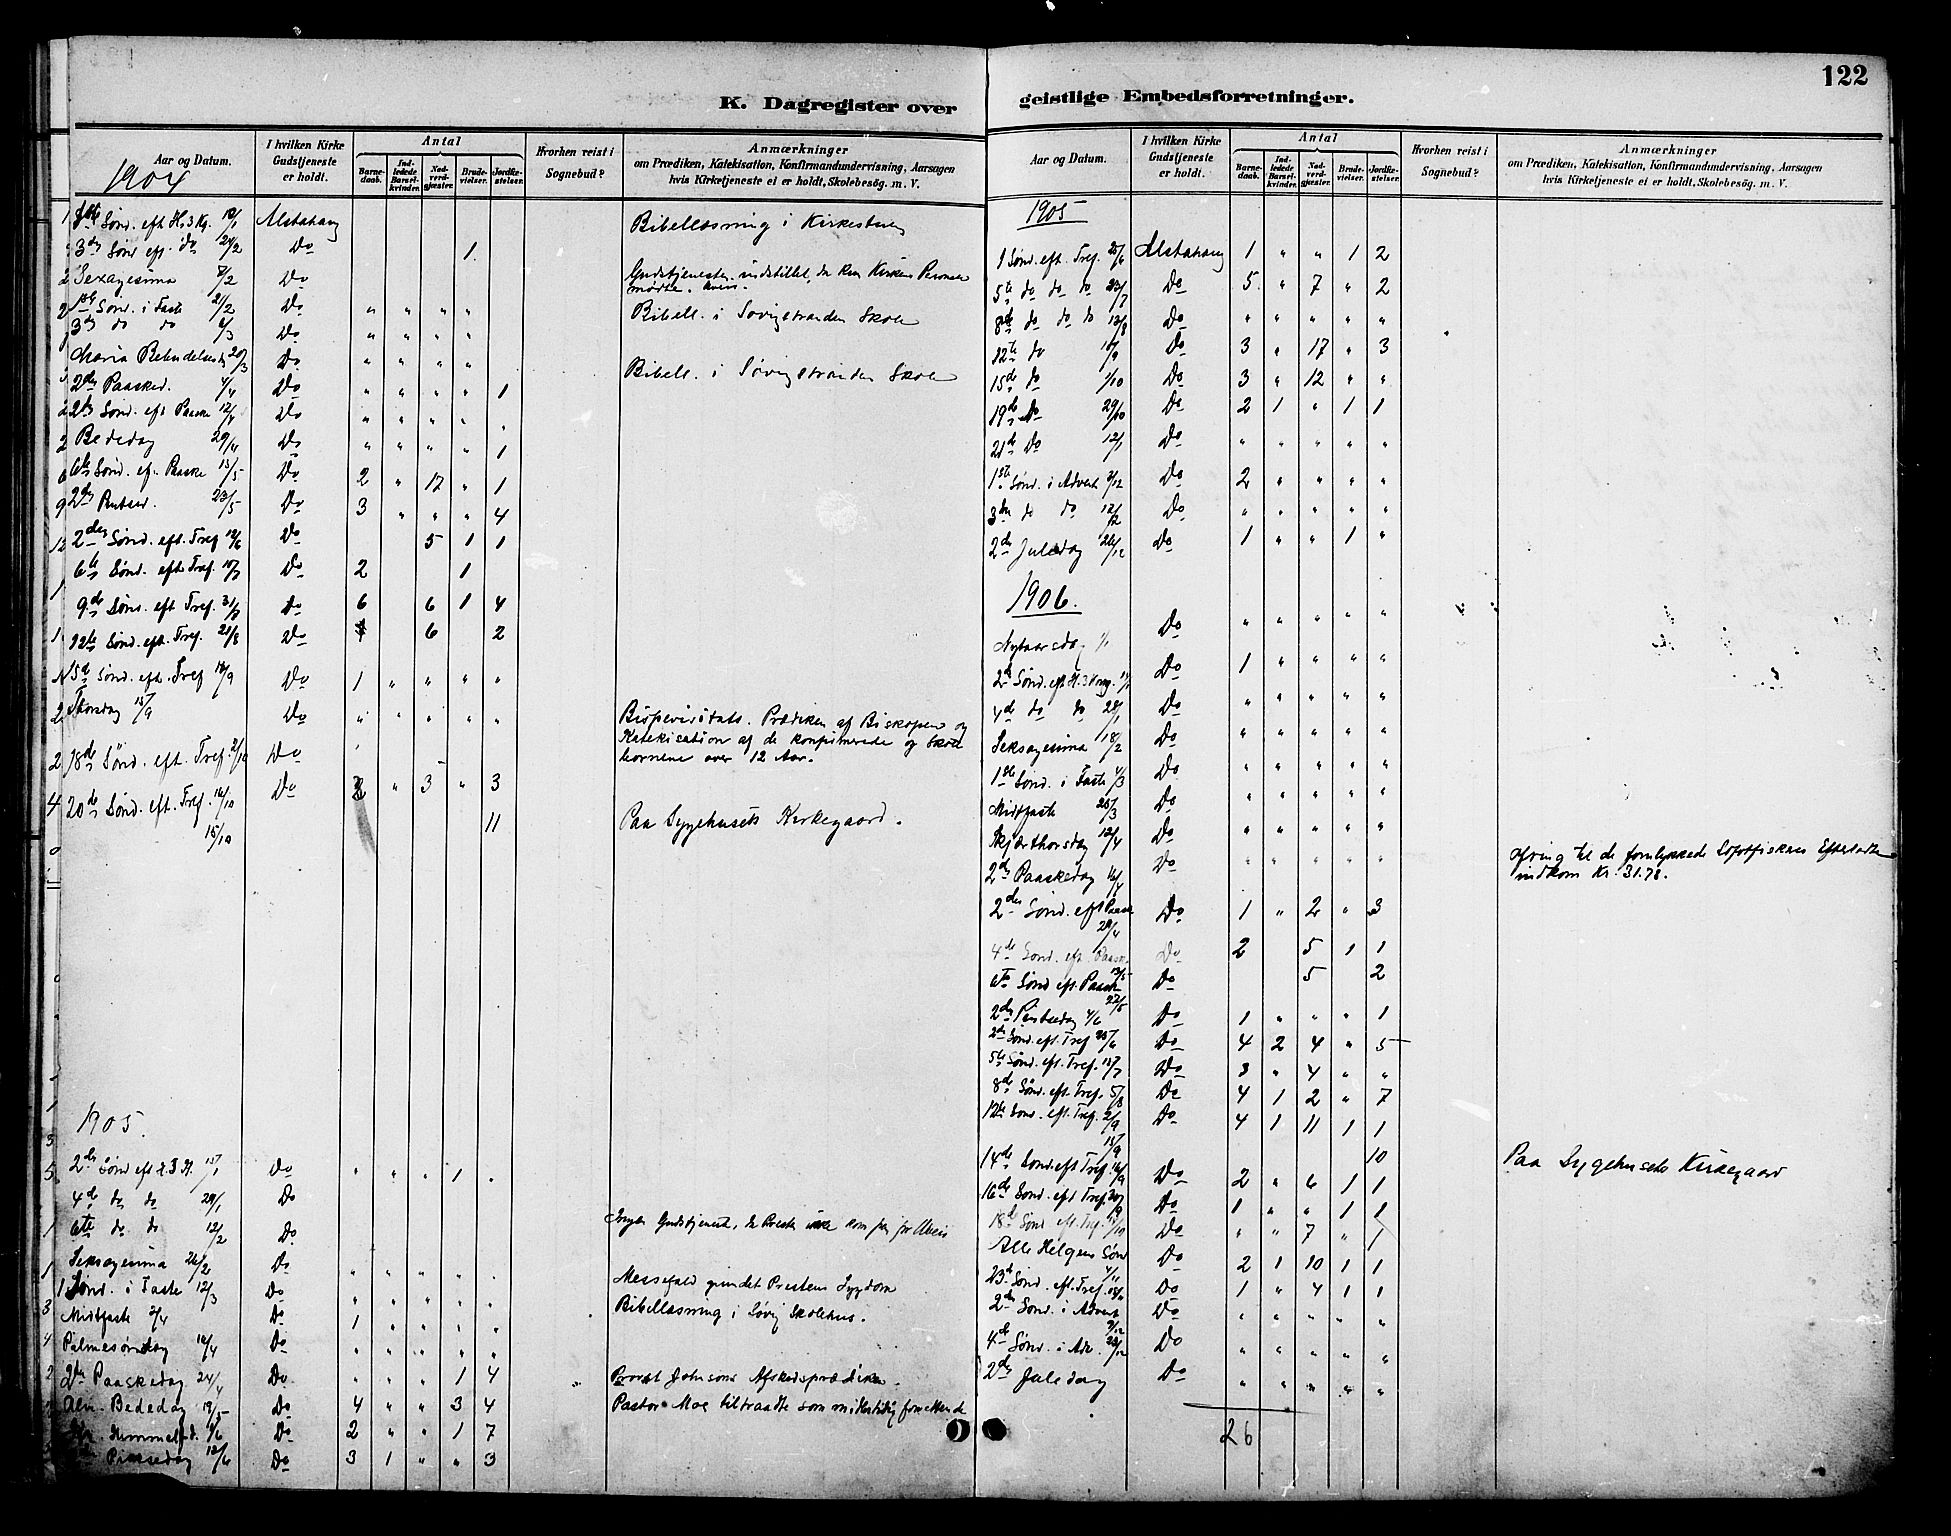 122
K. Dagregister over geistlige Embedsforretninger.
Aar og Datum. I hvilken Kirke Gudstjeneste er holdt. Antal Barnedaab. Indledede Barselkvinder. Nadverdgjester. Brudevielser. Jordfæstelser. Hvorhen reist i Sognebud? Anmærkninger om Prædiken, Katekisation, Konfirmandundervisning, Aarsagen hvis Kirketjeneste ei er holdt, Skolebesøg. m. V.
1904
Sønd. eft. H. 3 Kg. Alstahaug Bibellæsning i
3de Sønd. eft. do Do 1
Sexagesima 7/2 Do Gudstjenesten indstillet, da Kirkens
mødte.
1ste Sønd. i Faste 21/2 Do " " " " Bibell. i Søvigstranden Skole
3de do do 6/3 Do " " " "
Maria Bebudelses Do " " " "
Bibell. i Søvigstranden Skole
2den Paasked. 4/4 Do " " " " 1
2den Sønd. eft. Paaske Do " " " "
Bededag 29/4 Do " " " " 1
6te Sønd. ef. Paaske 15/5 Do 2 " 17 " 1
2den Pintsed. 23/5 Do 3 " " " 4
2den Sønd. eft. Tref. 12/6 Do 5 1 1
6te Sønd. efte Tref. 10/7 Do 2 1
9de Sønd. eft Tref. 31/7 Do 6 6 1 4
12te Sønd. eft. Tref. 21/8 Do 6 2
15de Sønd. eft. Tref Do 1 " " " "
Thorsdag 15/9 Do " " " " " Bispevisitats. Prædiken af Biskopen og
Katekisation af de konfirmerede og Skole
børnene over 12 Aar.
18de Sønd. eft. Tref. 2/10 Do
20de Sønd. eft. Tref. 16/10 Do " 3 " 3
15/10 11 Paa Sygehusets Kirkegaard.
1905.
2den Sønd eft H. 3 K. 15/1 Do " " " 1 "
4de do do 29/1 Do
6te do do 12/2 Do Ingen Gudstjeneste, da Presten ikke kom
Seksagesima 26/2 Do " " " " "
1. Sønd. i Faste 12/3 Do " " " " " Messefald grundet Prestens Sygdom
Midtfaste 2/4 Do 1 " " " " Bibellæsning i Søvig Skolehus.
Palmesøndag 16/4 Do " " " " "
2den Paaskedag 24/4 Do " " " 1 4 Provst Johnsons Afskedsprædiken
Alm. Bededag 19/5 Do 4 " " 3 4 Pastor Moe tiltraadte som midlertidig
Kr. Himmelf.d. 1/6 Do 2 " " 1 7
Pinsedag 12/6 Do 3 1 " " 3
Aar og Datum. I hvilken Kirke Gudstjeneste er holdt. Antal Barnedaab. Indledede Barselkvinder. Nadverdgjester. Brudevielser. Jordfæstelser. Hvorhen reist i Sognebud? Anmærkninger om Prædiken, Katekisation, Konfirmandundervisning, Aarsagen hvis Kirketjeneste ei er holdt, Skolebesøg. m. V.
1905
1 Sønd. eft. Tref. 25/6 Alstahaug 1 " " 1 2
5te do do do 23/7 Do 5 " 7 " 2
8de do do do 13/8 Do " " " " "
12te do 10/9 Do 3 " 17 " 3
15de do 1/10 Do 3 " 12 " "
19de Do 29/10 Do 2 1 " 1 1
21de Do Do " " " " "
1ste Sønd. i Advent 3/12 Do 2 " " " "
3die do do Do " " " " "
2den Juledag 26/12 Do 1 " " 1 "
1906.
Nytaarsdag 1/1 Do " " " " "
2den Sønd. eft H. 3 Kong. Do 1 " " " "
4de do do 28/1 Do " " " " "
Seksagesima 18/2 Do " " " " "
1ste Sønd. i Faste 4/3 Do " " " " "
Midtfaste 25/3 Do " " " " "
Skjærthorsdag 12/4 Do " " " " "
2den Paaskedag 16/4 Do " " " " " Ofring til de forulykkede Lofotfiskeres Efterladte
indkom Kr. 31.78.
2den Sønd. eft Paaske 29/4 Do 1 " 2 " 3
4de Sønd. eft. Paaske 13/5 Do 2 5 1 1
6te Sønd eft. Paaske 27/5 Do 5 2
2den Pintsedag 4/6 Do 1 " " " 1
2den Sønd. eft. Tref Do 4 2 4 " 5
5te Sønd. eft. Tref. Do 3 " 4 " "
8de Sønd. eft. Tref. 5/8 Do 4 1 2 " 7
12te Sønd. eft. Tref. 2/9 Do 4 1 11 1 1
15/9 10 Paa Sygehusets Kirkegaard
14de Sønd. eft Tref. 16/9 Do 2 " 6 1 1
16de Sønd. eft Tref. 30/9 Do 1 " " 1 1
18de Sønd eft. Tref. Do " " 7 " 1
Alle Helgens Sønd 4/11 Do 2 1 10 1 1
23de Sønd. eft. Tref. 18/11 Do 1 " 4 1 1
2den Sønd. i Advent 9/12 Do " " " " "
4de Sønd. i Adv. 23/12 Do " " " " "
2den Juledag Do " " " " "
26